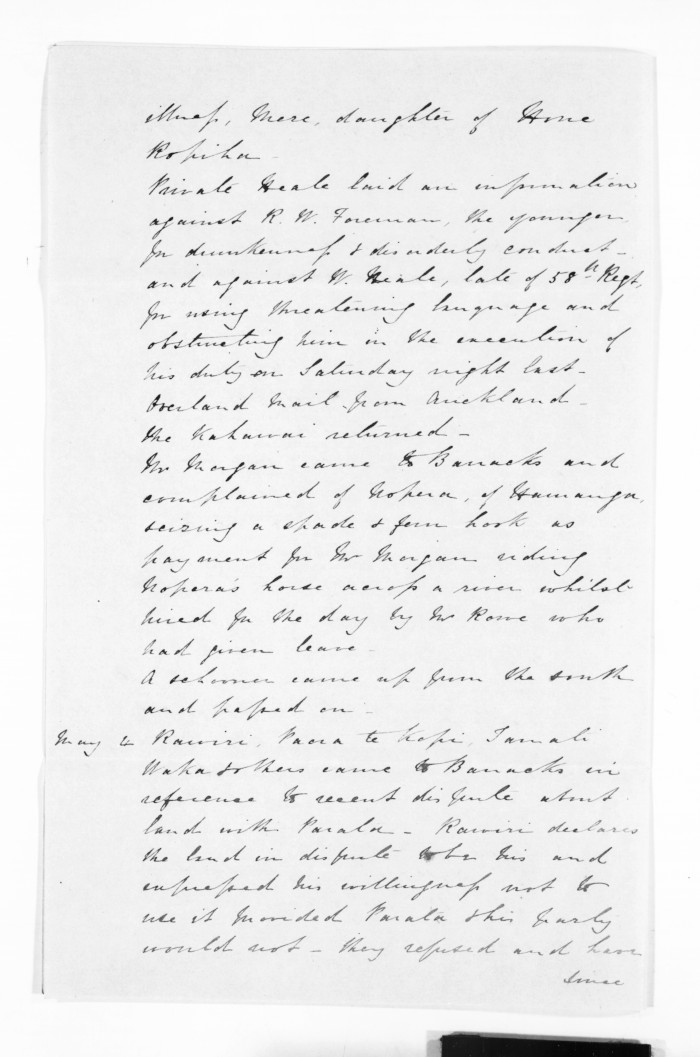 illness, Mere, daughter of Hone
Ropiha -
Private Heale laid an information
against R. W. Foreman, the younger
for drunkenness & disorderly conduct -
and against W. Neale, late of 58th Regt,
for using threatening language and
obstructing him in the execution of
his duty on Saturday night last -
Overland Mail from Auckland -
The Kahawai returned -
Mr Morgan came to Barracks and
complained of Nopera, of Hamanga,
seizing a spade & fern hook as
payment for Mr Morgan riding
Nopera's horse across a river whilst
hired for the day by Mr Rowe who
had given leave -
A schooner came up from the south
and passed on -
May 4 Rawiri, Paora te Kopi, Tamati
Waka & others came to Barracks in
reference to recent dispute about
land with Parata - Rawiri declares
the land in dispute to be his and
expressed his willingness not to
use it provided Parata & his party
would not - they refused and have
since